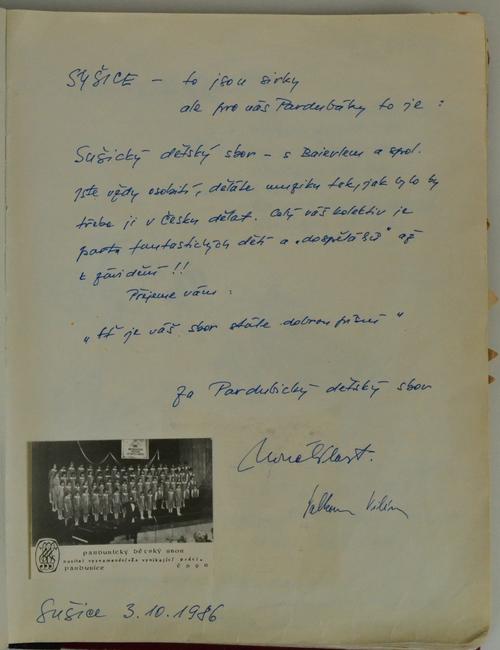 SUŠICE – to jsou sirky
ale pro nás Pardubáky to je :
Sušický dětský sbor – s Baierlem a spol.
Jste vždy osobití, děláte muziku tak, jak bylo by
třeba ji v Česku dělat. Celý váš kolektiv je
parta fantastických dětí a „dospěláků" až
k závidění !!
Přejeme vám :
„ Ať je váš sbor stále dobrou písní "
Za Pardubický dětský sbor
PARDUBICKÝ DĚTSKÝ SBOR
nositel vyznamenání Za vynikající práci
PARDUBICE ČSSR
Sušice 3.10.1986